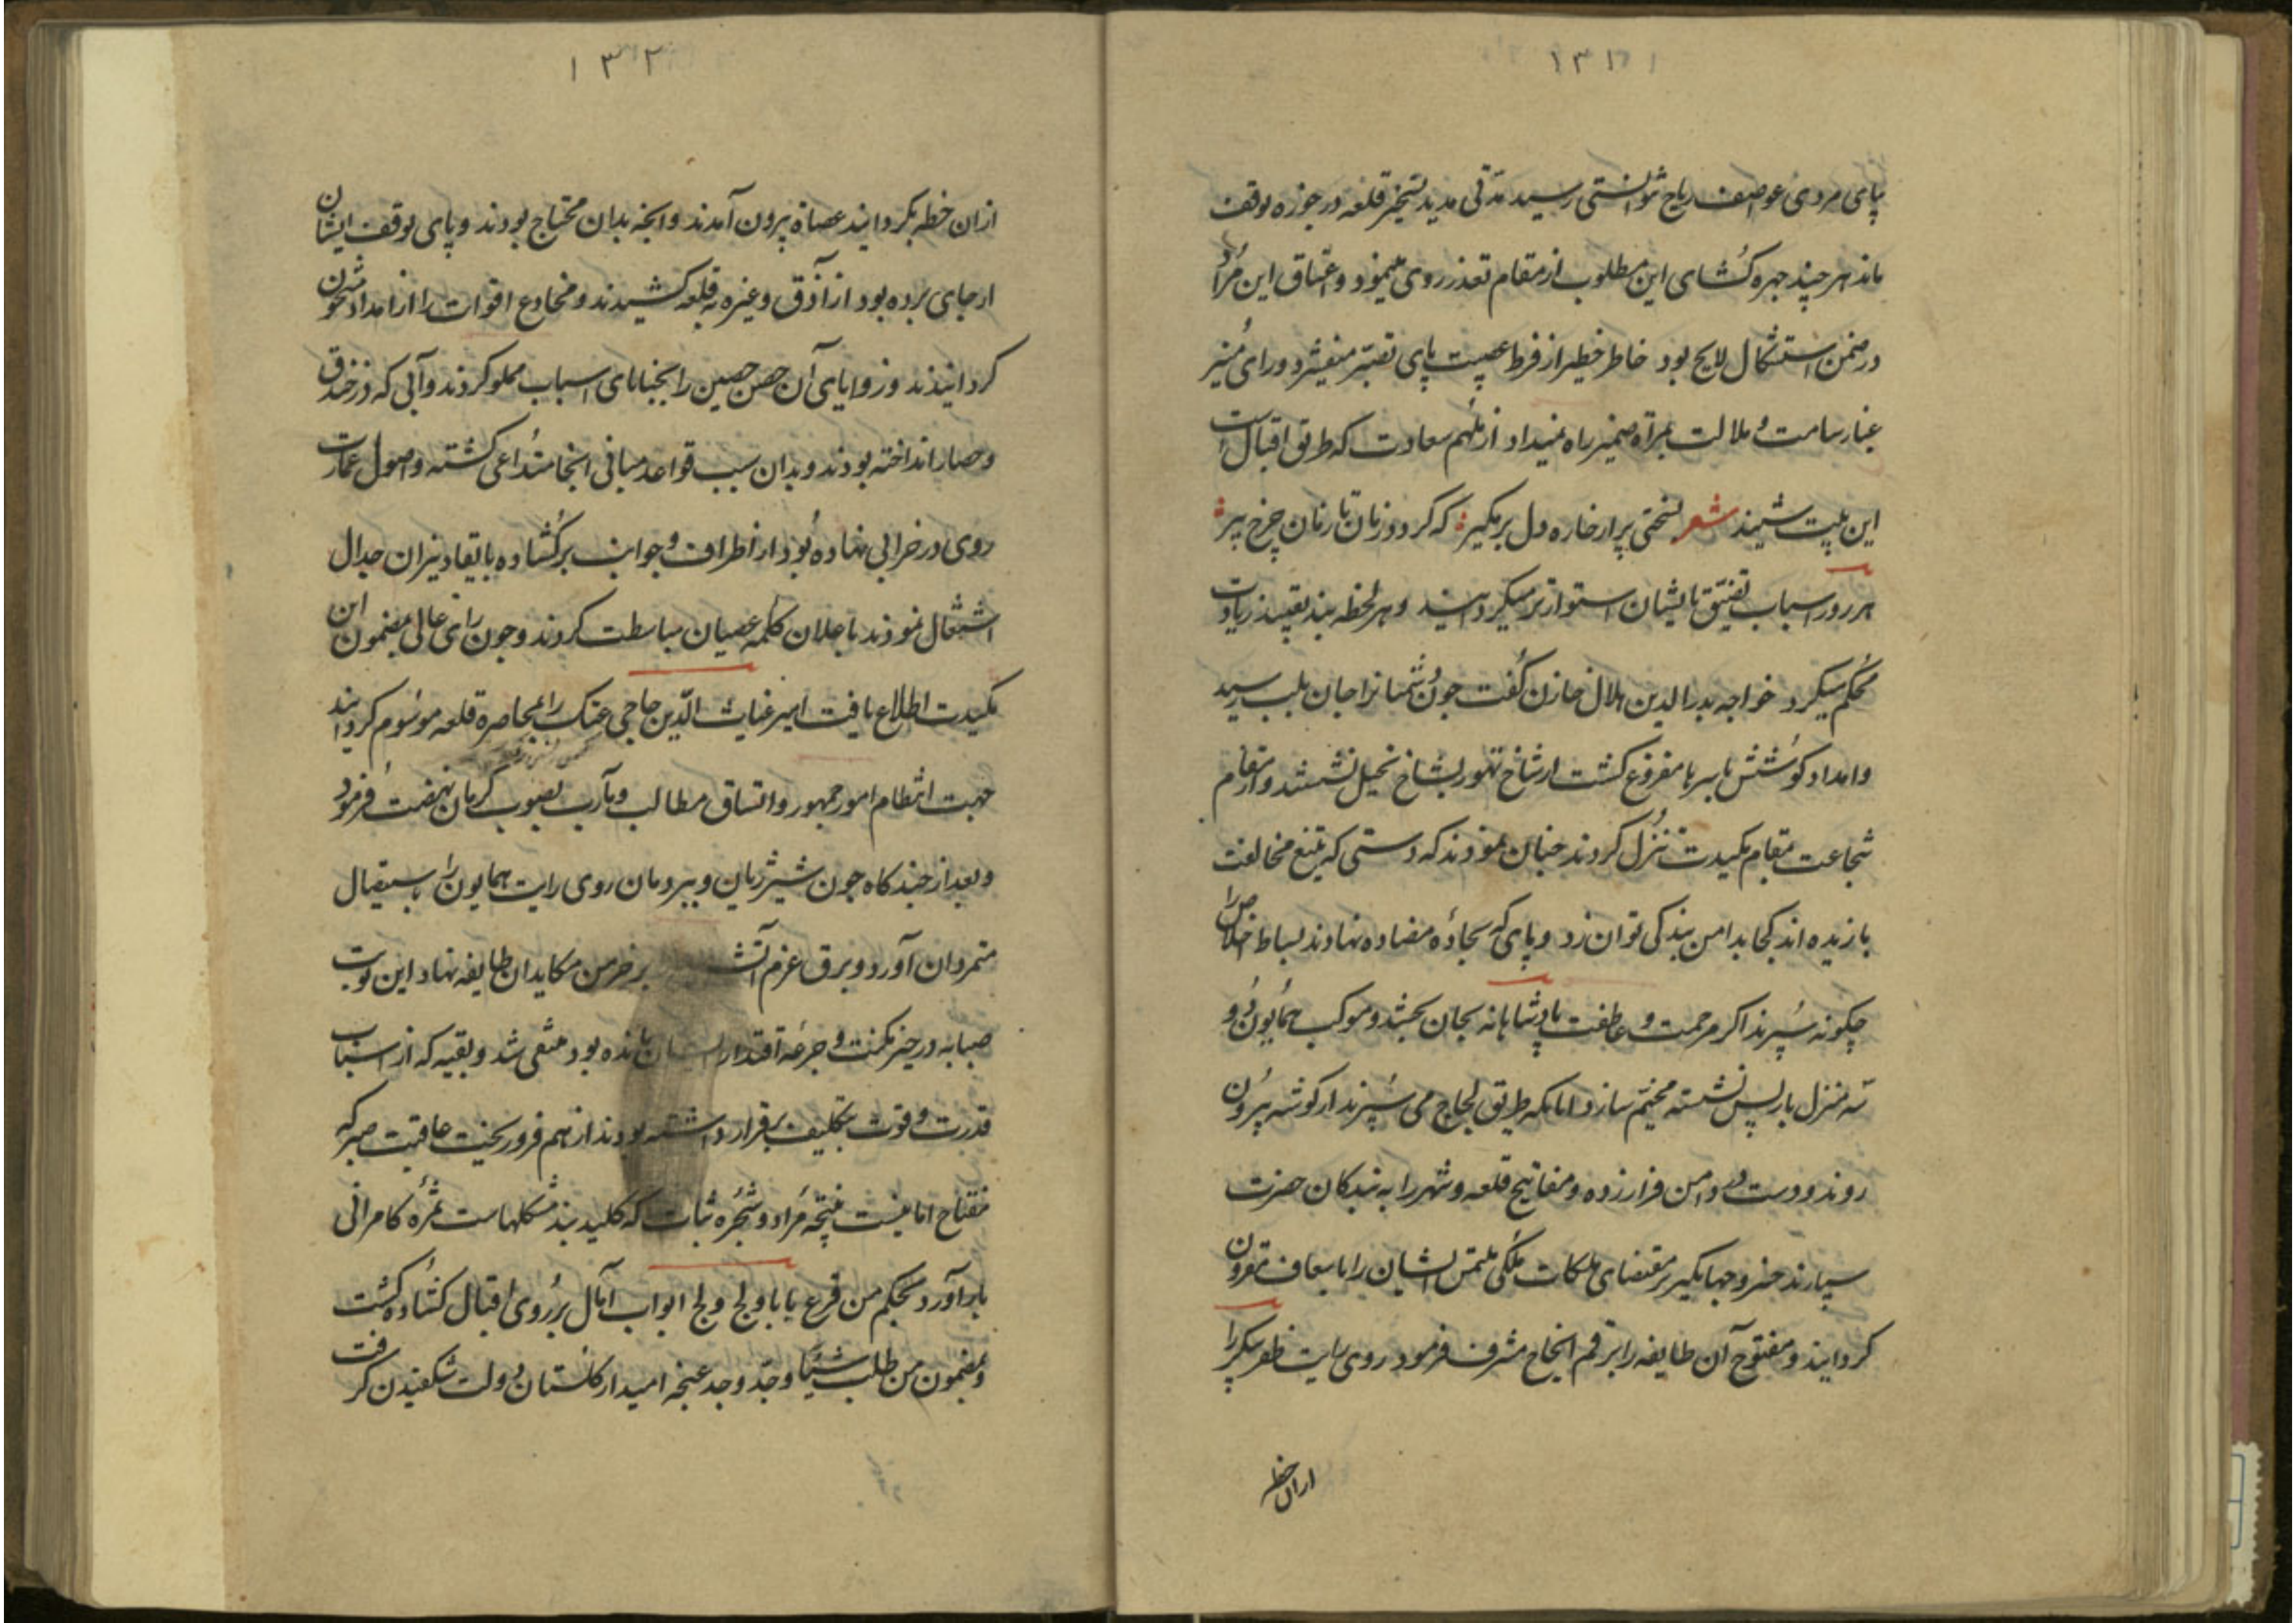 ۱۳۱
پای مردی عواصف ریاح توانستی رسید مدتی مدید تسخیر قلعه در حوزه توقف
ماند هر چند چهره کشای این مطلوب از مقام تعذر روی می‌نمود و اعتناق این مراد
در ضمن استشکال لایح بود خاطر خطیر از فرط عصبیت پای تصبر میفشرد و رای منیر
غبار سامت و ملالت بمرآة ضمیر راه نمیداد از ملهم سعادت که طریق اقبال است
این بیت شنید شعر لختی پر از خاره دل بر مگیر که گردد زمان تا زمان چرخ پیر
هر روز اسباب تضییق بایشان استوارتر میکردانید و هر لحظه بند تقیید زیادت
محکم میکرد خواجه بدرالدین هلال خازن کفت جون شمانرا جان بلب رسید
و امداد کوشش باسرها مفروغ کشت از شاخ تهور بشاخ تحیل نشستند و از مقام
شجاعت بمقام مکیدت تنزل کردند جنان نمودند که دستی که بتیغ مخالفت
بازیده‌اند کجا بدامن بندکی توان زد و پای که بجادهٔ مضاده نهادند بساط اخلاص را
چکونه سپرند اکر مرحمت و عاطفت پادشاهانه بجان بخشد و موکب همایون دو
سه منزل باز پس نشسته مخیم سازد امانکه طریق لجاج می سپرند از کوشه بیرون
روند و دست در دامن فرار زده و مفاتیح قلعه و شهر را به بندکان حضرت
سپارند خسرو جهانکیر بر مقتضای ملکات ملکی ملتمس ایشان را باسعاف مقرون
کردانید و مفتوح آن طایفه را برقم انجاح مشرف فرمود روی رایت ظفر پیکر را
ازان خطه
۱۳۲
ازان خطه بکردانید عصاة بیرون آمدند و انجه بدان محتاج بودند و پای توقف ایشان
از جای برده بود از آذق و غیره به قلعه کشیدند و مخادع اقوات را از امداد مشحون
کردانیدند و زوایای آن حصن حصین را بخبایای اسباب مملو کردند و آبی که در خندق
و حصار انداخته بودند و بدان سبب قواعد مبانی انجا متداعی کشته و اصول عمارت
روی در خرابی نهاده بود از اطراف و جوانب برکشاده بایقاد نیران جدال
اشتغال نمودند باعلان کلمه عصیان مباسطت کردند و جون رای عالی بمضمون این
مکیدت اطلاع یافت امیر غیاث الدین حاجی عنک را بمحاصره قلعه موسوم کردانید
جهت انتظام امور جمهور و اتساق مطالب و مآرب بصوب کرمان نهضت فرمود
و بعد از چندکاه جون شیر ژیان و ببر دمان روی رایت همایون را باستقبال
متمردان آورد و برق عزم آتش بر خرمن مکاید ان طایفه نهاد این نوبت
صبابه در حیز مکنت و جرعه اقتدار ایشان مانده بود منتفی شد و بقیه که از اسباب
قدرت و قوت بتکلیف برقرار داشته بودند از هم فرو ریخت عاقبت صبر که
مفتاح امانیست نتیجه مراد و شجره ثبات که کلید بند مشکلهاست ثمره کامرانی
بار آورد بحکم من قرع بابا ولج ولج ابواب آمال بر روی اقبال کشاده کشت
و بمضمون من طلب شیئا وجد وجد غنجه امید از کلستان دولت شکفیدن کرفت